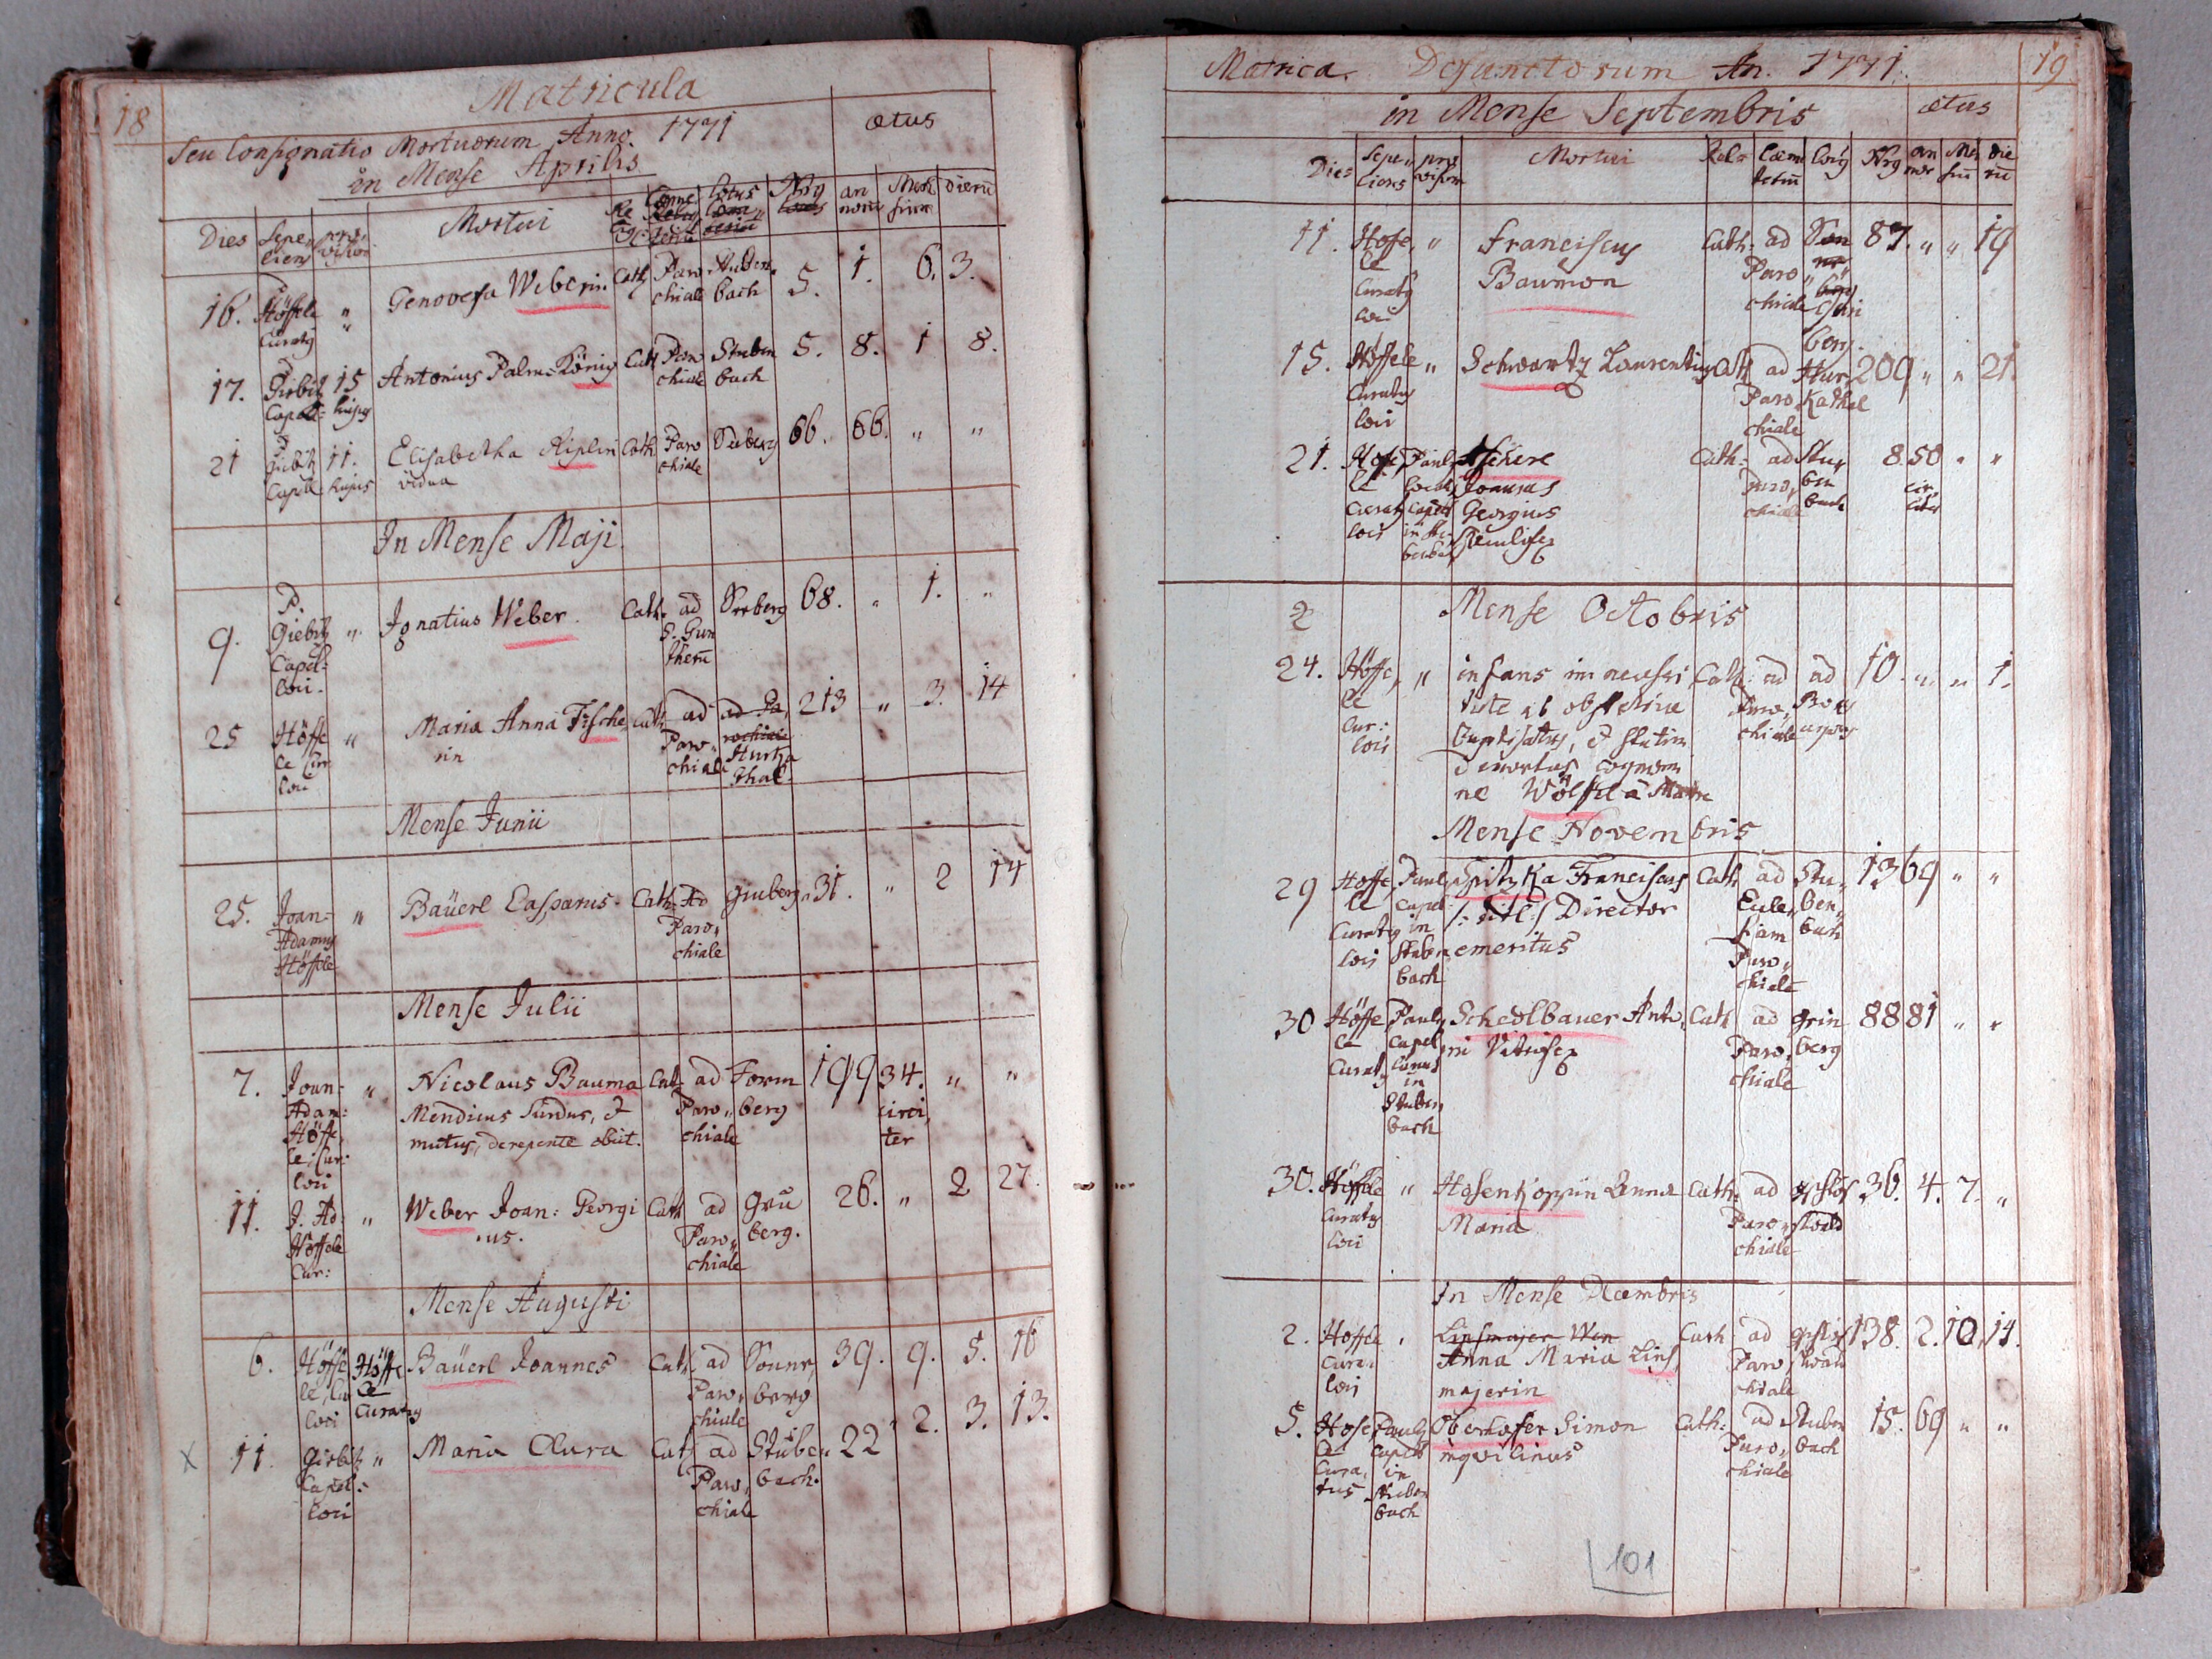 18
Matricula
Seu Consignatio Mortuorum Anno. 1771
in Mense Aprilis
ætus
Dies Sepe„ liens pro„ visor Mortui Nrg an norū Men sium dierū
16. P. Höffele Curatg „ Genovefa Weberin Cath Paro chiale Stuben„ bach 5. 1. 6. 3.
17. P. Girbitz Capell: 15 hujus Antonius Palm=König Cath Paro chiale Stuben bach 5. 8. 1 8.
21 P. Capell 11. hujus Elisabetha Kiplin vidua Cath Paro chiale Seeberg 66. 66. „ „
In Mense Maji.
9. P. Giebitz Capel: loci. „ Ignatius Weber. Cath. ad S. Gun therū Seeberg 68. „ 1. „
25 Höffe le Cur loci „ Maria Anna Fische rin Cath ad Paro„ chiale ad Pa, rochiale Hurka thal 213 „ 3. 14
Mense Junii
25. Joan= Adamus Höffele „ Bäuerl Casparus. Cath. Ad Paro„ chiale Gruberg„ 31. „ 2 14
Mense Julii
7. Joan= Adam: Höffe„ le, Cur: loci „ Nicolaus Bauma Mendicus Surdus, & mutus, derepente obiit. Cath ad Paro„ chiale Form berg 199 34. circi, ter „ „
11. J. Ad: Höffele Cur: „ Weber Joan: Georgi us. Cath ad Paro„ chiale Grü berg. 26. „ 2 27.
Mense Augusti
6. Höffe le, Cu loci Höffe le Curatg Bäuerl Joannes Cath ad Paro„ chiale Sonn„ berg 39. 9. 5. 16
X 11. Girbitz Capel: loci „ Maria Clara Cath ad Paro„ chiale Stuben„ bach. 22 2. 3. 13.
Matrica. Defunctorum An. 1771.
19
in Mense Septembris
ætas
Dies Sepe„ liens pro visor Mortui Relig Cœm teriū locg Nrg an nor Men siū die rū
11. Hofe„ le Curatg loci „ Franciscus Baumon Cath: ad Paro„ chiale Son berg 87. „ „ 19
15. Höffele Curatg loci „ Schwartz Laurentius Cath ad Paro„ chiale Hur kathal 209 „ „ 21.
21. Hofe le Curatg loci Paulg Joannes Georgius Cath: ad Paro„ chiale Stu„ ben bach 8. 50 cir citer „ „
2 Mense Octobris
24. Höffe„ le Cur: loci „ infans in necessi tate ab obstetrice baptisatus, et statim demortus, cognomi ne Wölffel à Matre Cath: ad Paro„ chiale ad 10. „ „ 1.
Mense Novembris
29 Hoffe le Curatg loci Paulg Capel: in Stuben bach Spitzka Franciscus /: titl: / Director emeritus Cath ad Eccle„ siam Paro„ chiale Stu„ ben„ bach 13 69 „ „
30 Höffe le Curatg Paulg Capel lanus in Stuben„ bach Schedlbauer Anto„ ni Cath ad Paro„ chiale Grin berg 88 81 „ „
30. Höffele Curatg loci „ Hosenkopfin Anna Maria Cath: ad Paro„ chiale gschlos„ swald 36. 4. 7. „
In Mense Decembris
2. Hoffele Cura: loci „ Linsmajer Anna Maria Lins majerin Cath ad Paro„ chiale 138. 2. 10. 14.
5. Hofe„ le Cura, tus Paulg Capell in Stuben bach Oberhofer Simon inqvilinus Cath: ad Paro„ chiale Stuben bach 15. 69 „ „
101